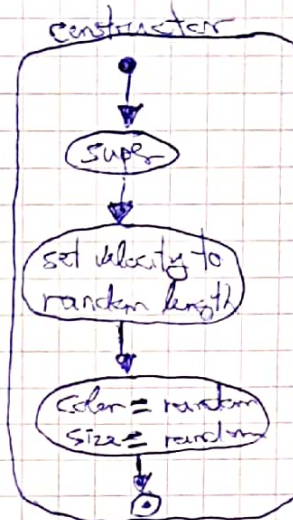 constructor
super
set velocity to
random length
color = random
size = random